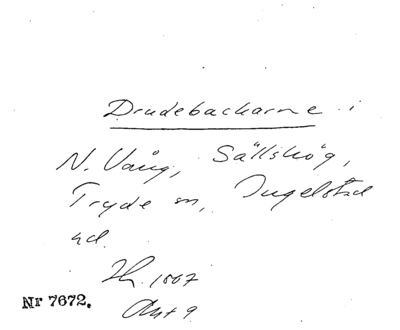 Drudebackarne i
N. Vång, Sällshög,
Tryde sn, Ingelstad
hd.
Nr 7672.